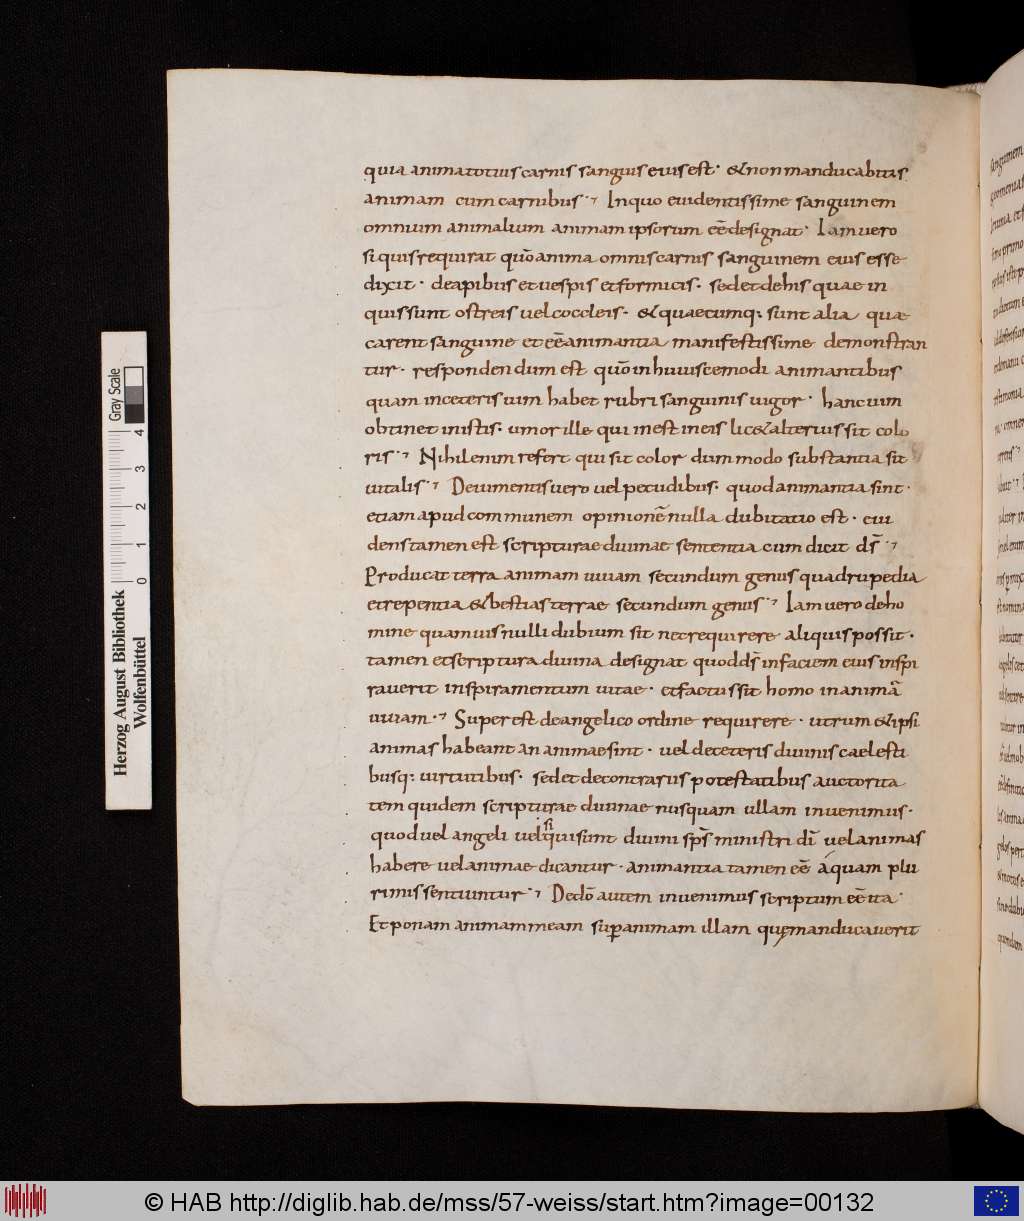 quia anima totius carnis sanguis eius est· & non manducabitas
animam cum carnibus·⁊ In quo euidentissime sanguinem
omnium animalium animam ipsorum eē designat· Iam uero
si quis requirat quō anima omnis carnis sanguinem eius esse
dixit· de apibus et uespis et formicis· sed et de his quae in
quis sunt ostreis uel coccleis· & quaecumq: sunt alia quae
carent sanguine et eē animantia manifestissime demonstran
tur· respondendum est quō in huiuscemodi animantibus
quam in ceteris uim habet rubri sanguinis uigor· hanc uim
obtinet in istis· umor ille qui inest in eis lic& alterius sit colo
ris·⁊ Nihil enim refert qui sit color dummodo substantia sit
uitalis·⁊ De iumentis uero uel pecudibus· quod animantia sint·
etiam apud communem opinionē nulla dubitatio est· eui
dens tamen est scripturae diuinae sententia cum dicit dš·⁊
Producat terra animam uiuam secundum genus quadrupedia
et repentia & bestias terrae secundum genus·⁊ Iam uero de ho
mine quamuis nulli dubium sit nec requirere aliquis possit·
tamen et scriptura diuina designat quod dš in faciem eius inspi
rauerit inspiramentum uitae· et factus sit homo in animā
uiuam·⁊ Super est de angelico ordine requirere· utrum & ipsi
animas habeant an animae sint· uel de ceteris diuinis caelesti
busq: uirtutibus· sed et de contrariis potestatibus auctorita
tem quidem scripturae diuinae nusquam ullam inuenimus·
quod uel angeli uel qui sunt diuini spš ministri dī uel animas
habere uel animae dicantur· animantia tamen eē a quam plu
rimis sentiuntur·⁊ De dō autem inuenimus scriptum eē ita·
Et ponam animam meam super animam illam quę manducauerit
Herzog August Bibliothek
Wolfenbüttel
Gray Scale
0 1 2 3 4
© HAB http://diglib.hab.de/mss/57-weiss/start.htm?image=00132